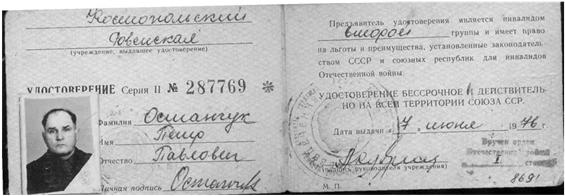 (учреждение, выдавшее удостоверение)
УДОСТОВЕРЕНИЕ Серия II № 287769 *
Фамилия Остапчук
Имя Петро
Отчество Павлович
Личная подпись
Предъявитель удостоверения является инвалидом
второй группы и имеет право
на льготы и преимущества, установленные законодатель-
ством СССР и союзных республик для инвалидов
Отечественной войны.
УДОСТОВЕРЕНИЕ БЕССРОЧНОЕ И ДЕЙСТВИТЕЛЬ-
НО НА ВСЕЙ ТЕРРИТОРИИ СОЮЗА ССР.
Дата выдачи 7 июня 1976 г.
Вручен орден
Отечественной войны
I
М. П.
8691